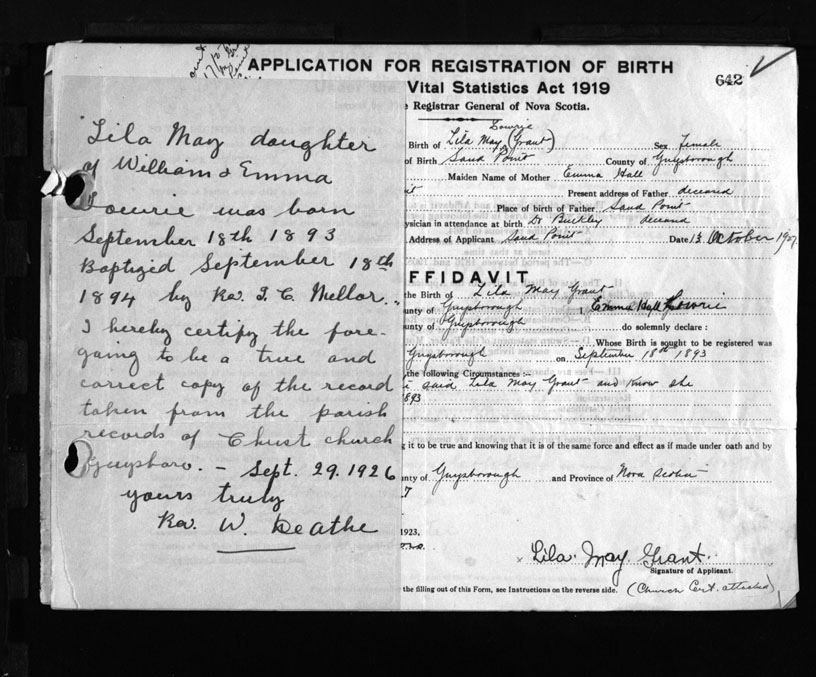 APPLICATION FOR REGISTRATION OF BIRTH
642
Vital Statistics Act 1919
Registrar General of Nova Scotia.
Lila May daughter
of William & Emma
Lowrie was born
September 18th 1893
Baptized September 18th
1894 by Rev. T. C. Mellor.
I hereby certify the fore-
going to be a true and
correct copy of the record
taken from the parish
records of Christ church
Guysboro. - Sept. 29. 1926
yours truly
Rev. W.
Lowrie
Birth of Lila May (Grant) Sex Female
of Birth Sand Point County of Guysborough
Maiden Name of Mother Emma Hall
Present address of Father deceased
Place of birth of Father Sand Point
ysician in attendance at birth Dr Buckley deceased
Address of Applicant Sand Point Date 13 October
FFIDAVIT
the Birth of Lila May Grant
unty of Guysborough I, Emma Hall Lowrie
unty of Guysborough do solemnly declare :
Whose Birth is sought to be registered was
Guysborough on September 18th 1893
the following Circumstances :-
said Lila May Grant and know she
1893
g it to be true and knowing that it is of the same force and effect as if made under oath and by
nty of Guysborough and Province of Nova Scotia
1923,
Lila May Grant.
Signature of Applicant.
the filling out of this Form, see Instructions on the reverse side. (Church Cert. attached)